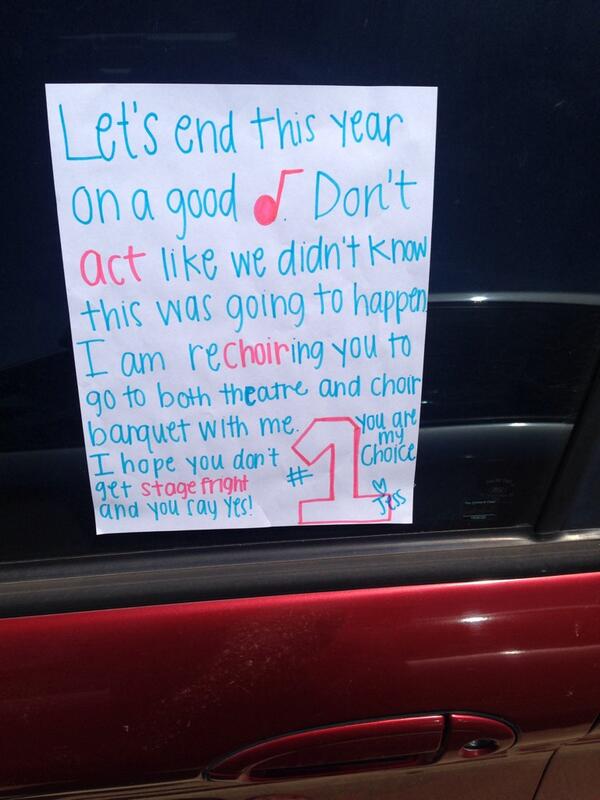 Let's end this year
on a good ♪. Don't
act like we didn't know
this was going to happen.
I am rechoiring you to
go to both theatre and choir
banquet with me.
I hope you don't
get stage fright
and you say yes!
#1
you are
my
choice
♡
Jess